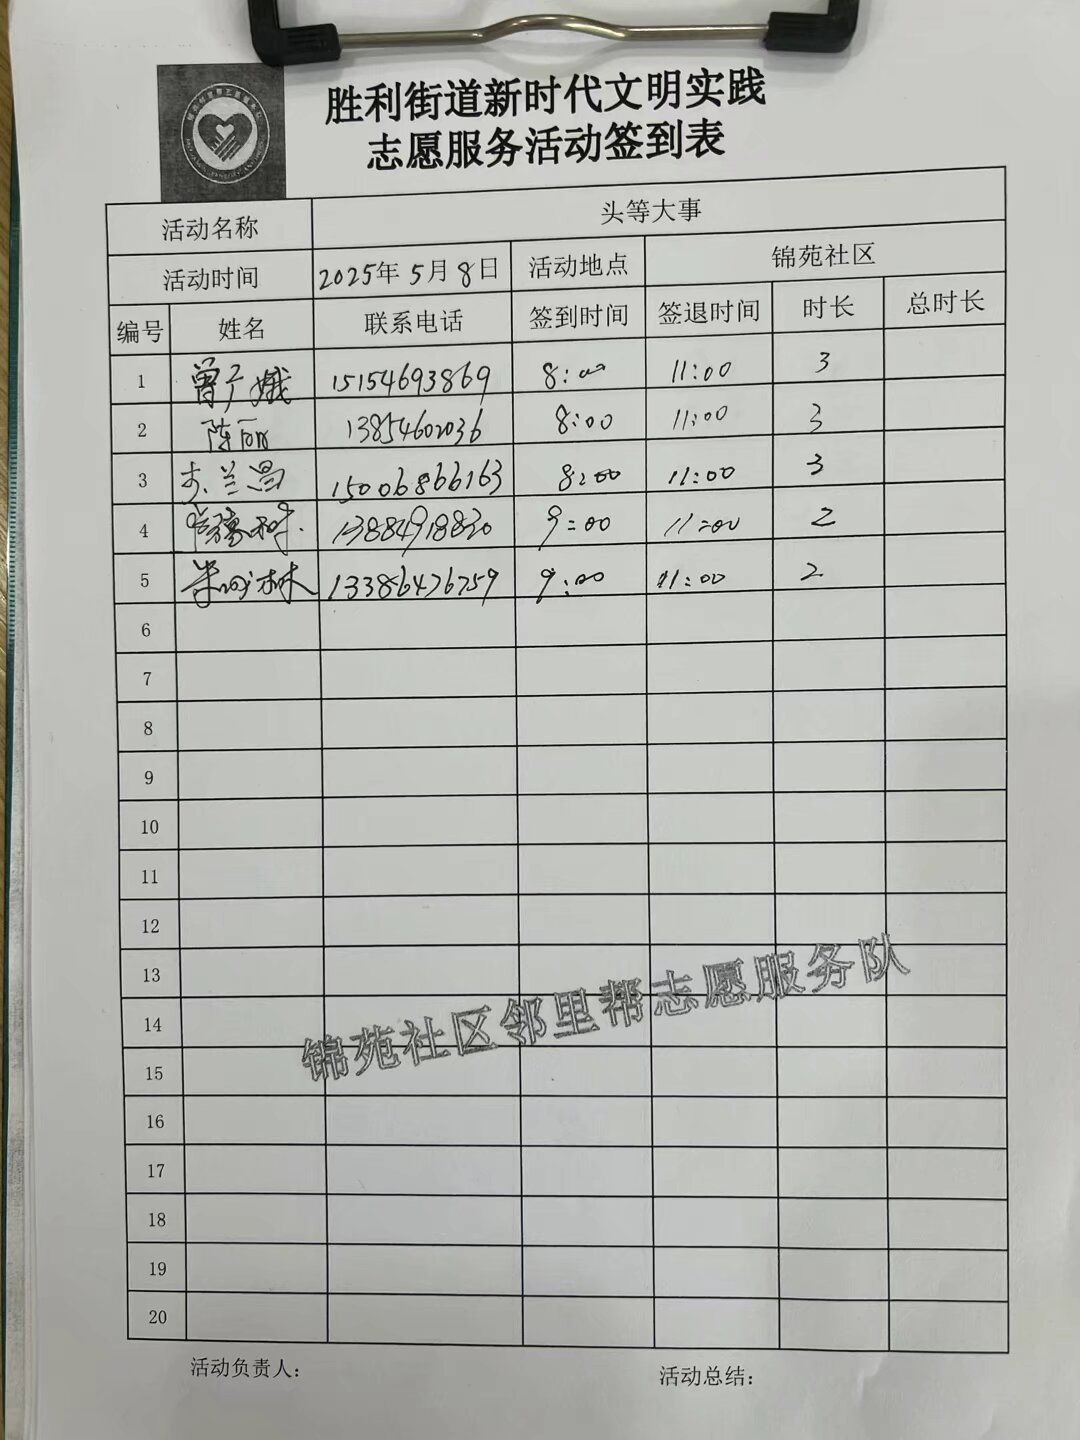 胜利街道新时代文明实践
志愿服务活动签到表
活动名称 头等大事
活动时间 2025年5月8日 活动地点 锦苑社区
编号 姓名 联系电话 签到时间 签退时间 时长 总时长
1 曾广娥 15154693869 8:00 11:00 3
2 陈丽 13854602036 8:00 11:00 3
3 兰昌 15006866163 8:00 11:00 3
4 13884918830 9:00 11:00 2
5 林 13386476759 9:00 11:00 2
6
7
8
9
10
11
12
13
14
锦苑社区邻里帮志愿服务队
15
16
17
18
19
20
活动负责人: 活动总结: